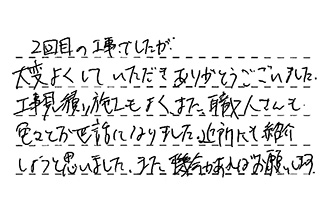 2回目の工事でしたが
大変よくして いただき ありがとうございました。
工事見積り、施工もよく、また、職人さんも
色々とお世話になりました。近所にも紹介
しようと思いました。また 機会があればお願いします。